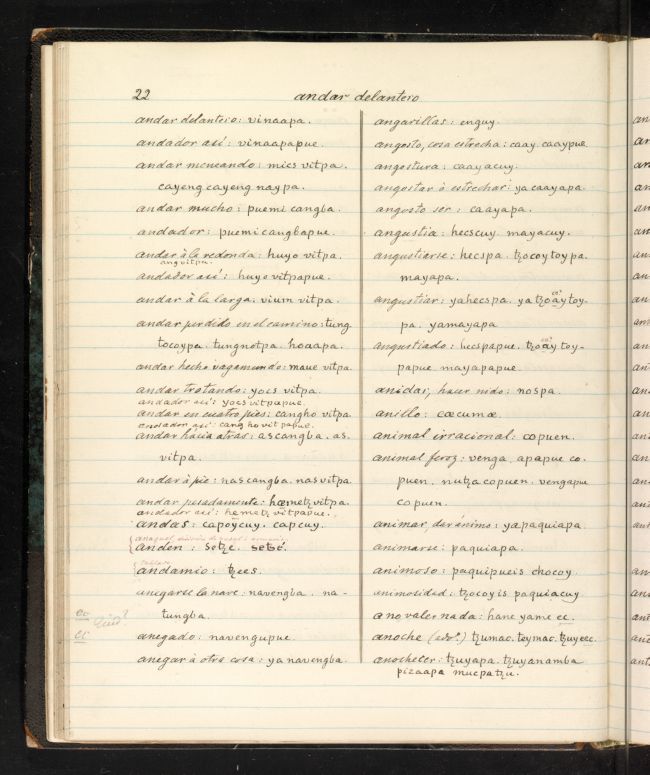 22
andar delantero
andar delantero: vinaapa.
andador asi: vinaapapue.
andar meneando: mics vitpa.
cayeng cayeng naypa.
andar mucho: puemi cangba.
andador: puemicangbapue.
andar à la redonda: huyo vitpa.
angvitpa.
andador asi: huyo vitpapue.
andar à la larga: vium vitpa.
andar perdido en el camino: tung
tocoypa. tungnotpa. hoaapa.
andar hecho vagamundo: maue vitpa
andar trotando: yocs vitpa.
andador asi: yocs vitpapue.
andar en cuatro pies: cangho vitpa
andador asi: cangho vit papue.
andar hácia atras: ascangba. as.
vitpa.
andar à pie: nascangba. nasvitpa
andar pesadamente: hæmetz vitpa.
andador asi: hemetz vitpapue.
andas: capoycuy. capcuy.
andén: setze. setsé.
andamio: tzees.
anegarse la nave: navengba. na-
tungba.
anegado: navengupue.
anegar à otra cosa: ya navengba.
angarillas: enguy.
angosto, cosa estrecha: caay. caaypue.
angostura: caayacuy.
angostar ò estrechar: ya caayapa.
angosto ser: caayapa.
angustia: hecscuy. mayacuy.
angustiarse: hecspa. tzocoytoypa.
mayapa.
angustiar: yahecspa. ya tzoāytoy-
pa. yamayapa
angustiado: hecspapue. tzoāytoy-
papue. mayapapue.
anidar, hacer nido: nospa.
anillo: cæcumæ.
animal irracional: copuen.
animal feroz: venga. apapue co-
puen. nutza copuen. vengapue
copuen.
animar, dar ánimo: yapaquiapa.
animarse: paquiapa.
animoso: paquipueis chocoy.
animosidad: tzocoyis paquiacuy
ano valer nada: hane yame ec.
anoche (adv.) tzumac. teymac. tzuyeec.
anochecer: tzuyapa. tzuyanamba
pizaapa mucpatzu.